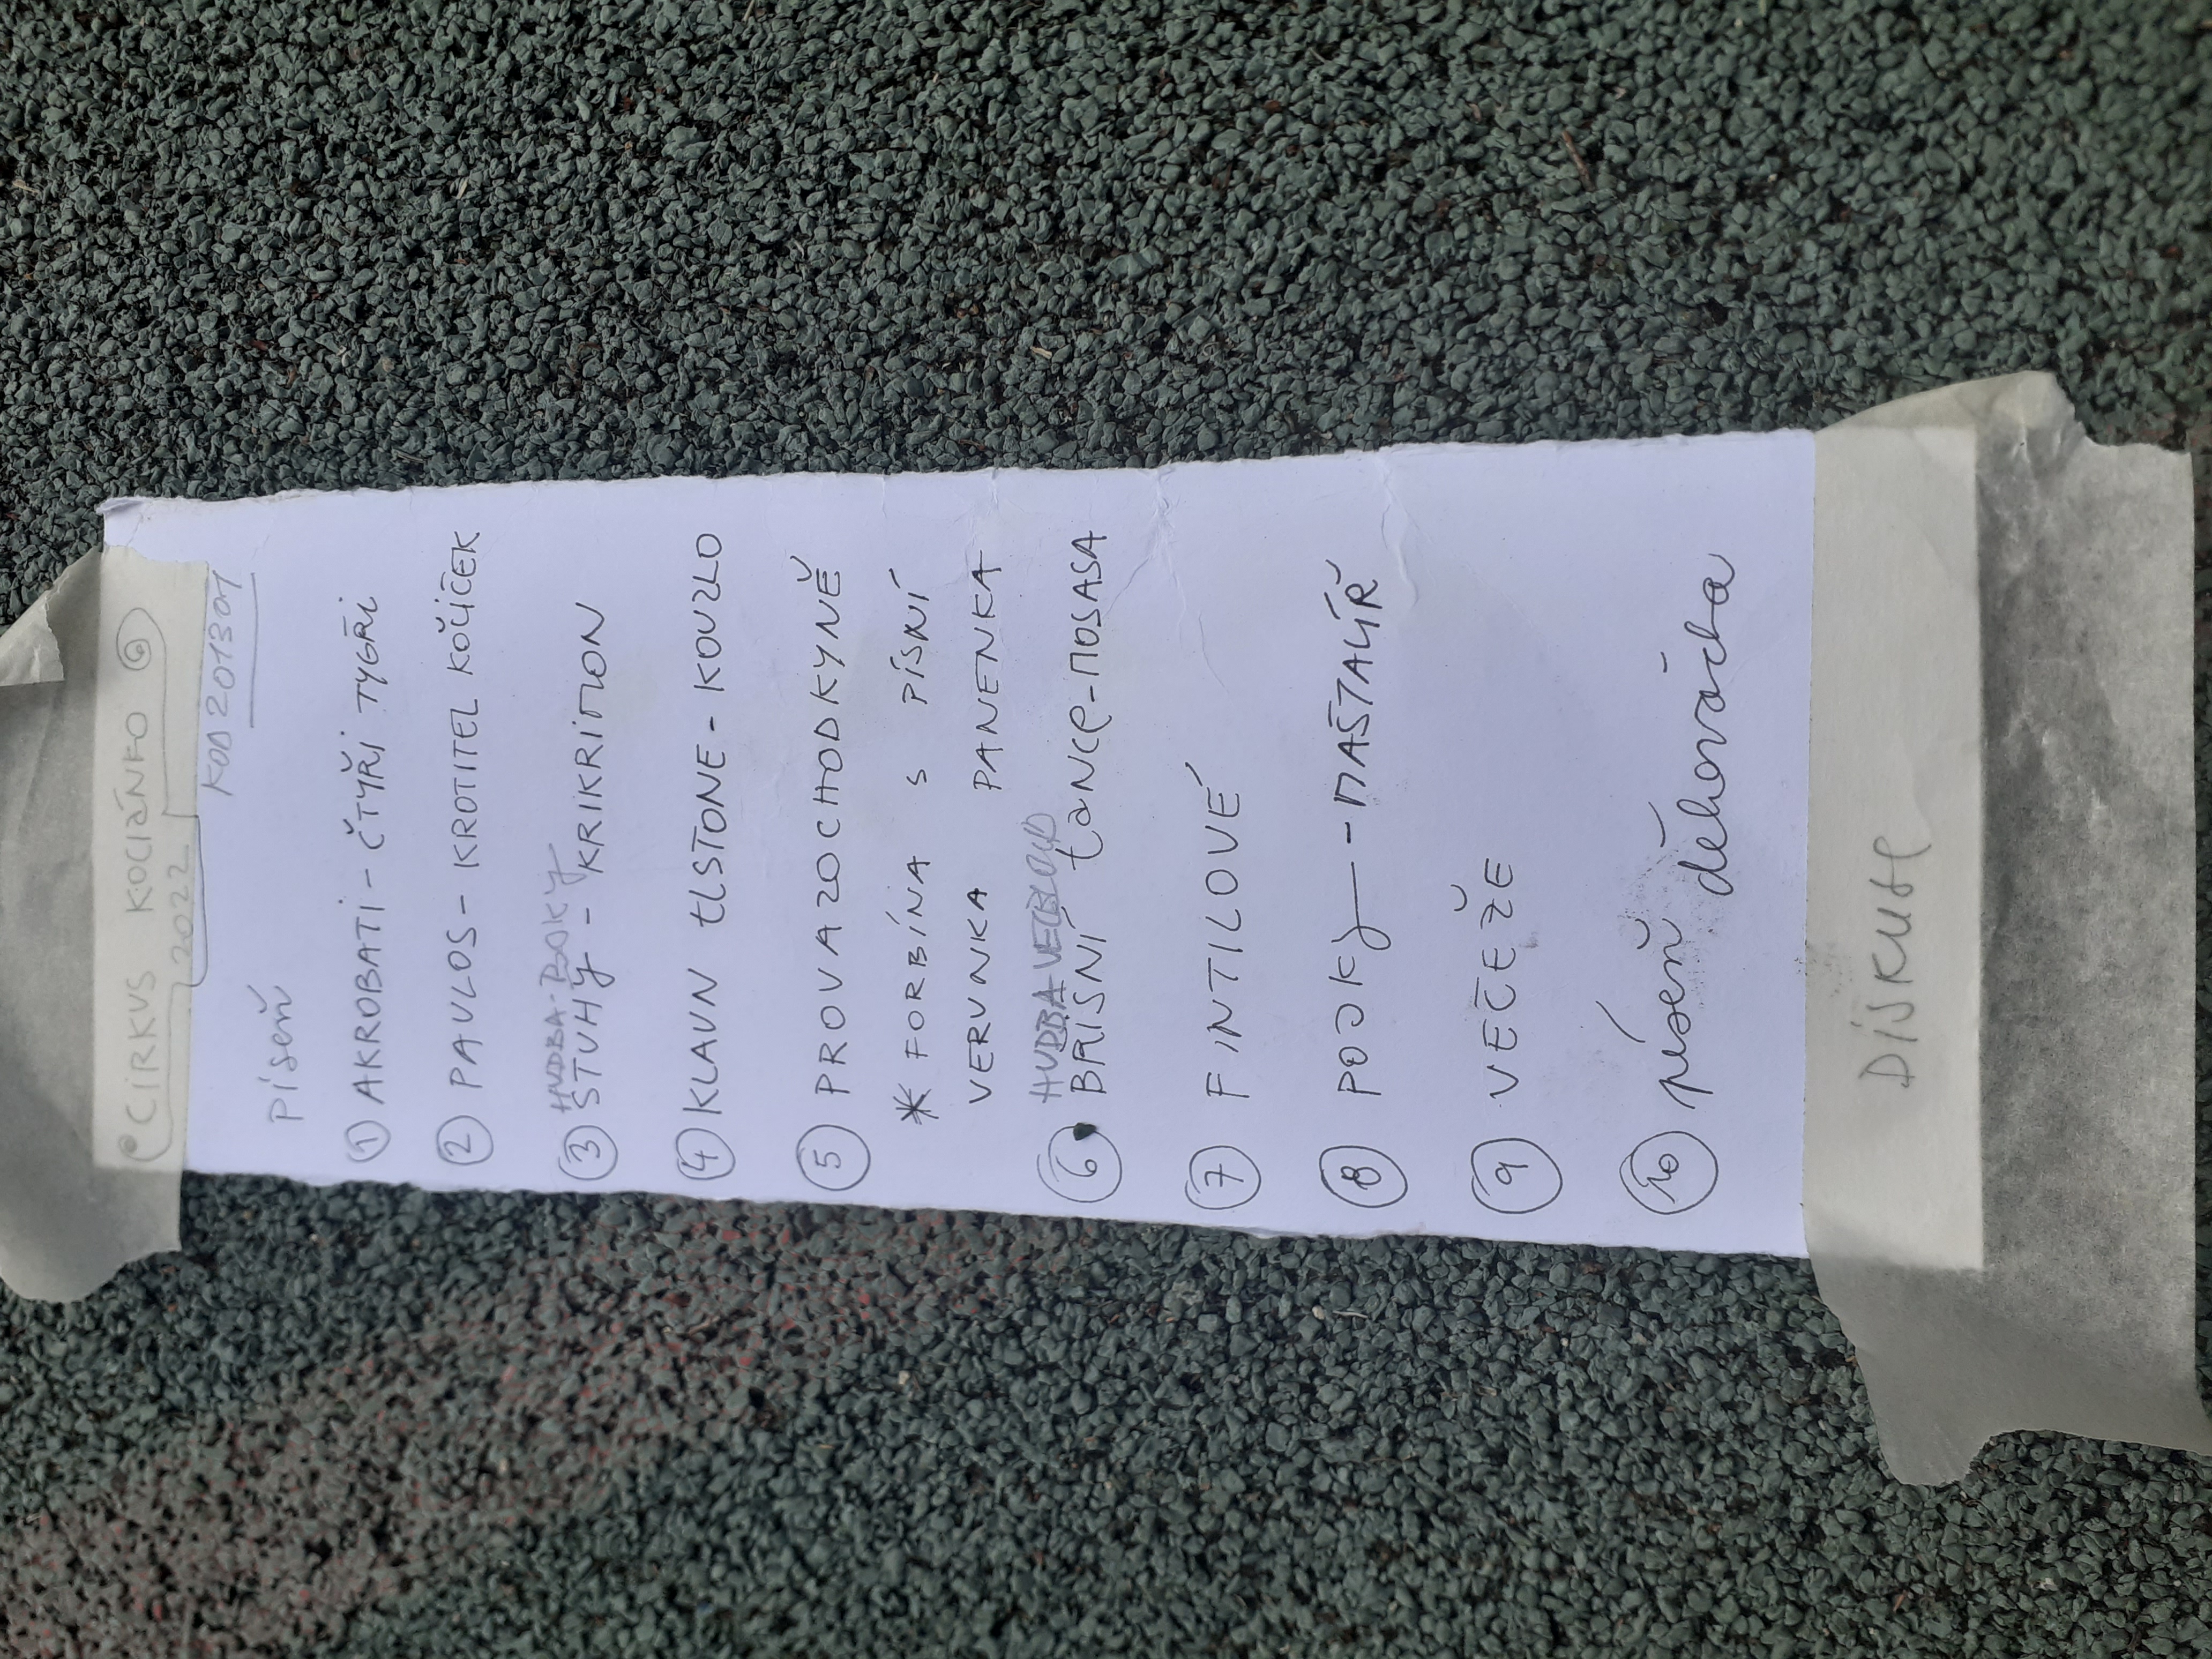 CIRKUS KOCIÁNKO
2022
KOD 201301
píseň
1 AKROBATI - ČTYŘI TYGŘI
2 PAVLOS - KROTITEL KOČIČEK
HUDBA - BOKY
3 STUHY - KRIKRIMON
4 KLAUN tLSTONE - KOUZLO
5 PROVAZOCHODKYNĚ
* FORBÍNA S PÍSNÍ
VERUNKA PANENKA
HUDBA VELBLOUD
6 BŘIŠNÍ taNce - MOSASA
7 FINTILOVÉ
8 POJKY - MAŠTALÍŘ
9 VEČEŽE
10 píseň děkovačka